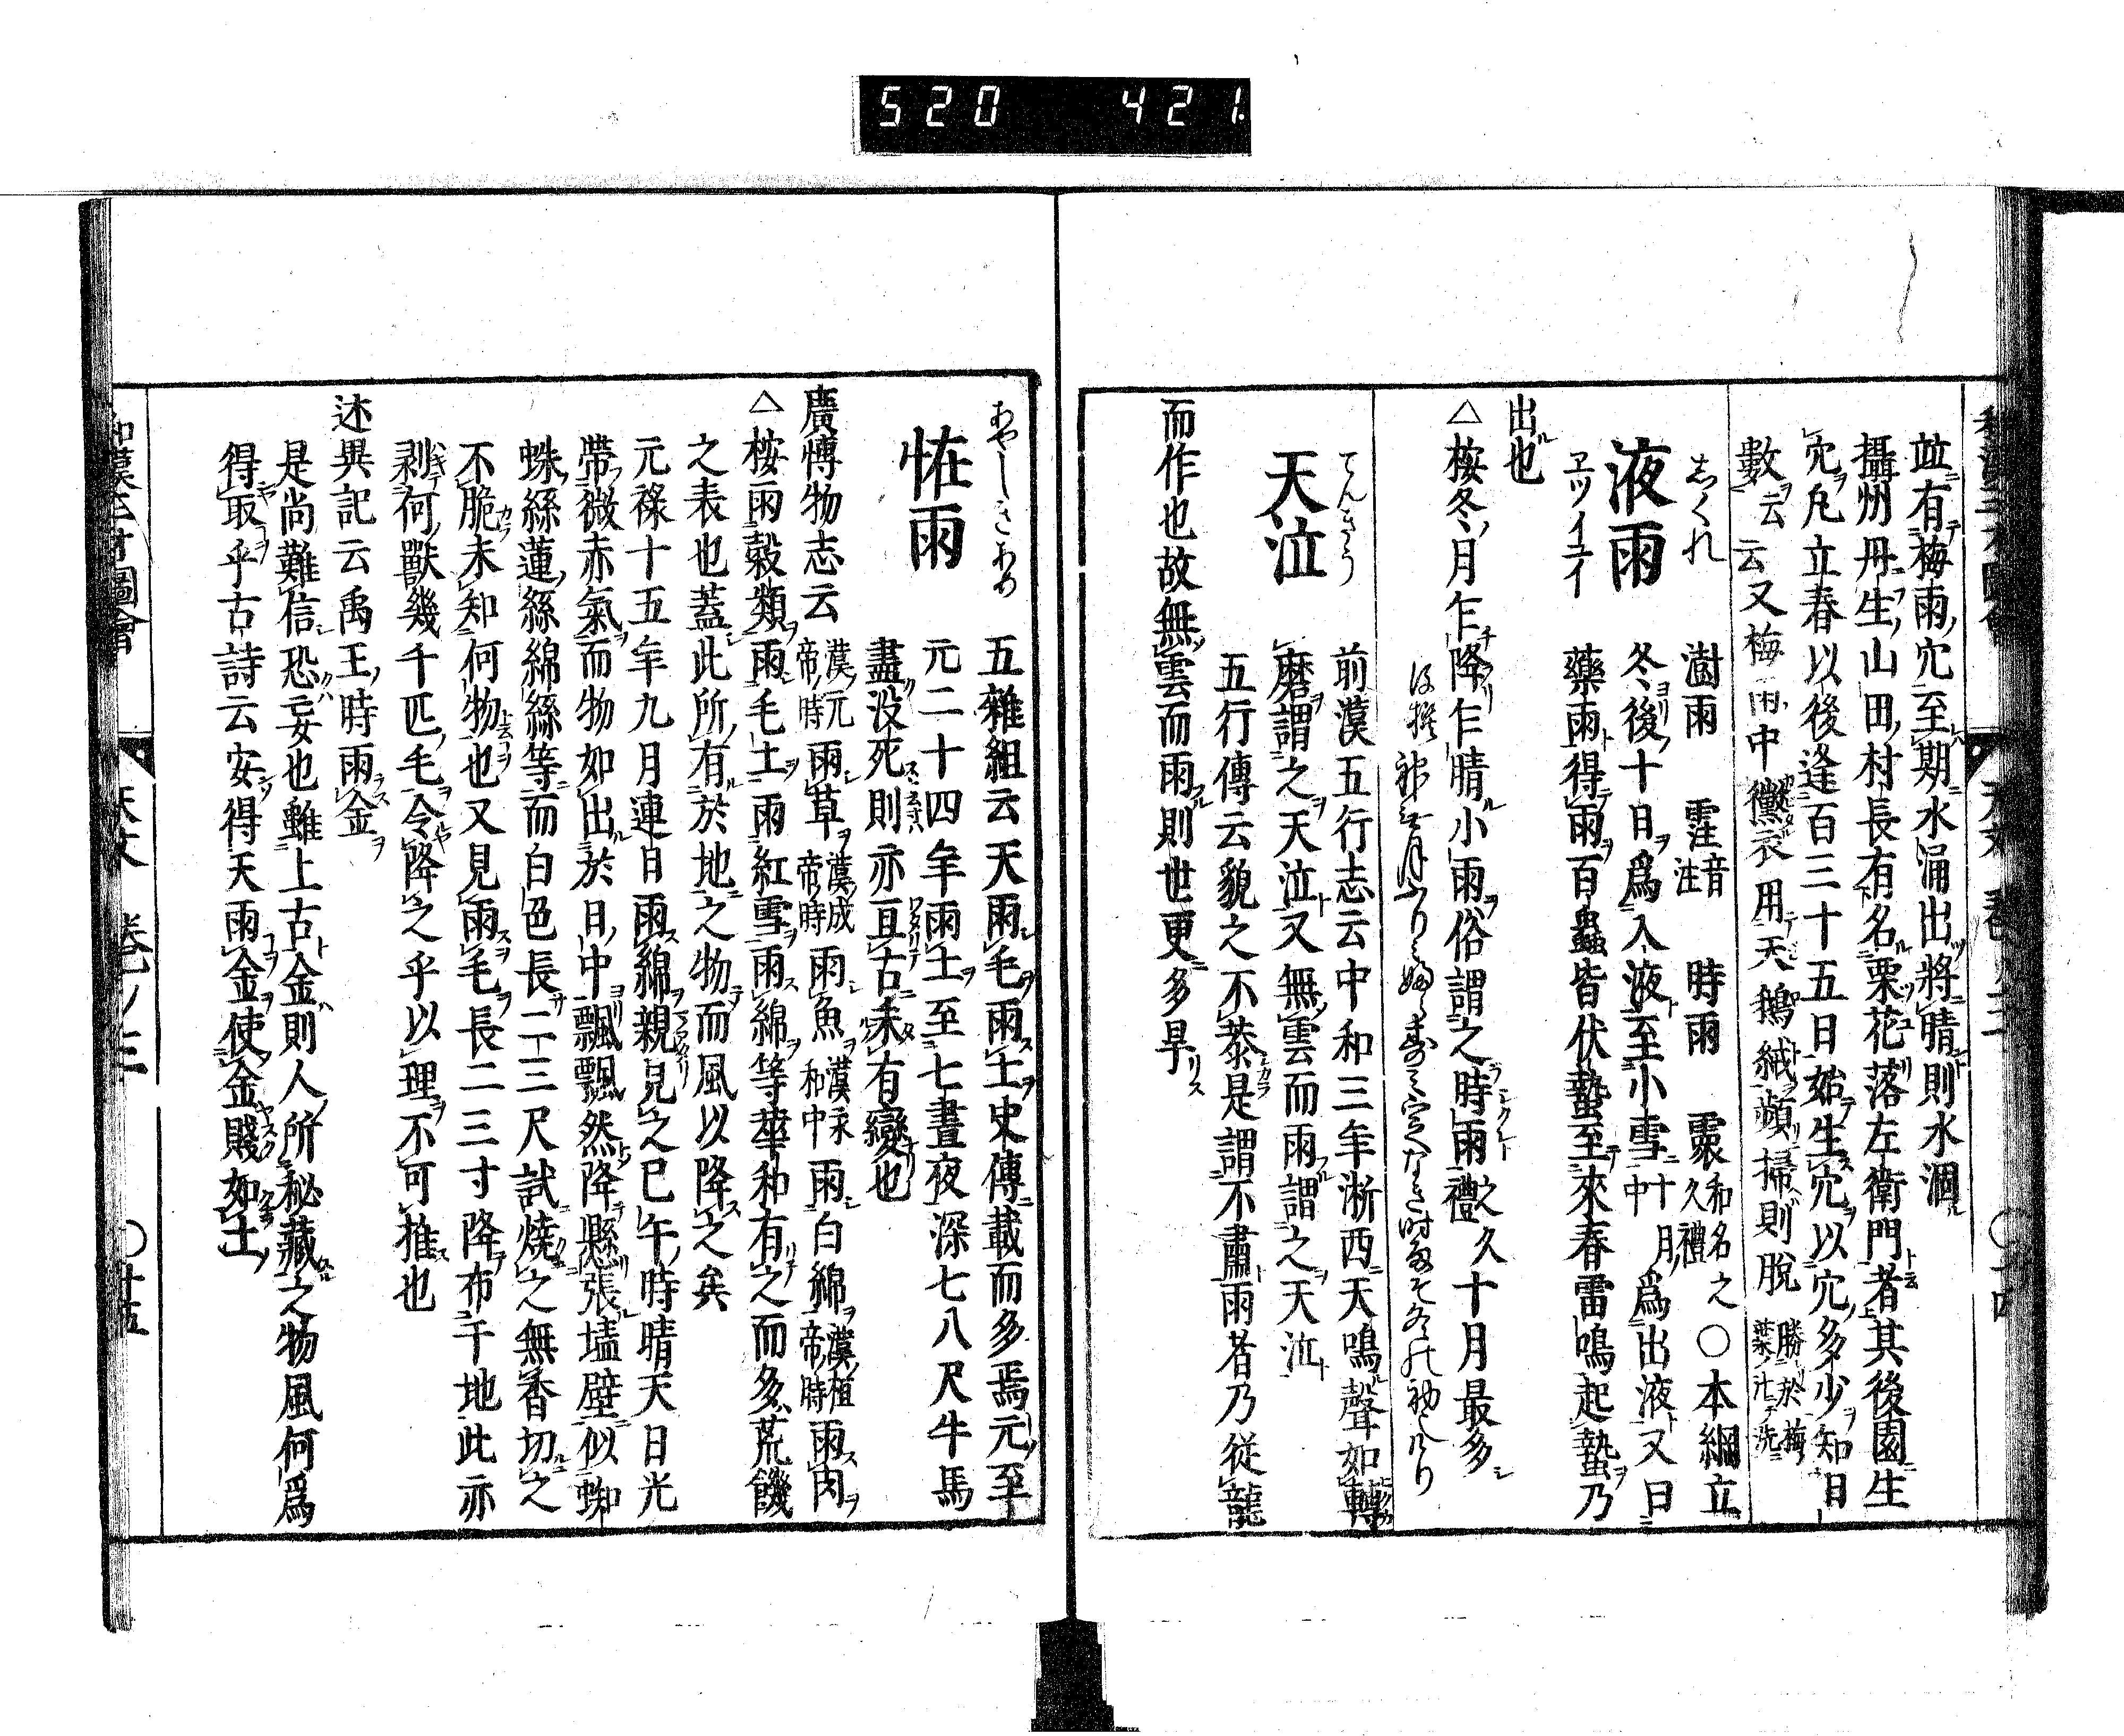 520 421
竝有梅雨穴至期水涌出將晴則水涸
攝州丹生山田村長有名栗花落左衛門者其後園生
穴凡立春以後逢百三十五日始生穴以穴多少知日
數云云又梅雨中黴衣用天鵝絨頻掃則脫勝於梅葉汁洗
しくれ
液雨
ヱツイユイ
澍雨 霔音注 時雨 霥和名之久禮 〇本綱立
冬後十日爲入液至小雪十月中爲出液又曰
藥雨得雨百蟲皆伏蟄至來春雷鳴起蟄乃
出也
△桉冬月乍降乍晴小雨俗謂之時雨之久禮十月最多
後撰 神無月ふりみふらすみ定なき時雨そ冬の初也けり
てんきう
天泣
前漢五行志云中和三年淅西天鳴聲如轉
磨謂之天泣又無雲而雨謂之天泣
五行傳云貌之不恭是謂不肅雨者乃從龍
而作也故無雲而雨則世更多旱
あやしきあめ
恠雨
五雜組云天雨毛雨土史傳載而多焉元至
元二十四年雨土至七晝夜深七八尺牛馬
盡没死則亦亘古未有變也
廣博物志云漢元帝時雨草漢成帝時雨魚漢永和中雨白綿漢植帝時雨肉
△桉雨穀類雨毛土雨紅雪雨綿等華和有之而多荒饑
之表也蓋此所有於地之物而風以降之矣
元祿十五年九月連日雨綿親見之巳午時晴天日光
帶微赤氣而物如出於日中飄飄然降懸張壒壁似蜘
蛛絲蓮絲綿絲等而白色長二三尺試燒之無香切之
不脆未知何物也又見雨毛長二三寸降布干地此亦
剥何獸幾千匹毛令降之乎以理不可推也
述異記云禹王時雨金
是尚難信恐妄也雖上古金則人所秘藏之物風何爲
得取乎古詩云安得天雨金使金賤如土
和漢三才圖會 天文 卷ノ三 〇十五